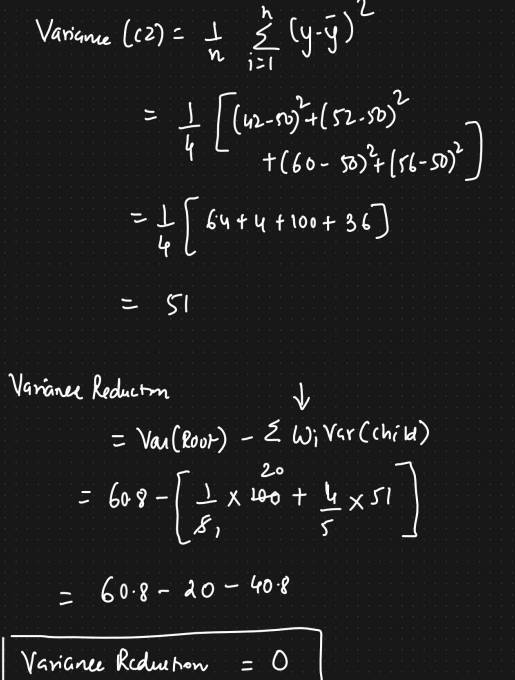 Variance (C2) = 1/n n Σ i=1 (y-ȳ)²
= 1/4 [(42-50)²+(52-50)²
+(60-50)²+(56-50)²]
= 1/4 [64+4+100+36]
= 51
Variance Reduction ↓
= Var(Root) - Σ Wi Var(Child)
20
= 60.8 - [1/5 x 100 + 4/5 x 51]
= 60.8 - 20 - 40.8
Variance Reduction = 0